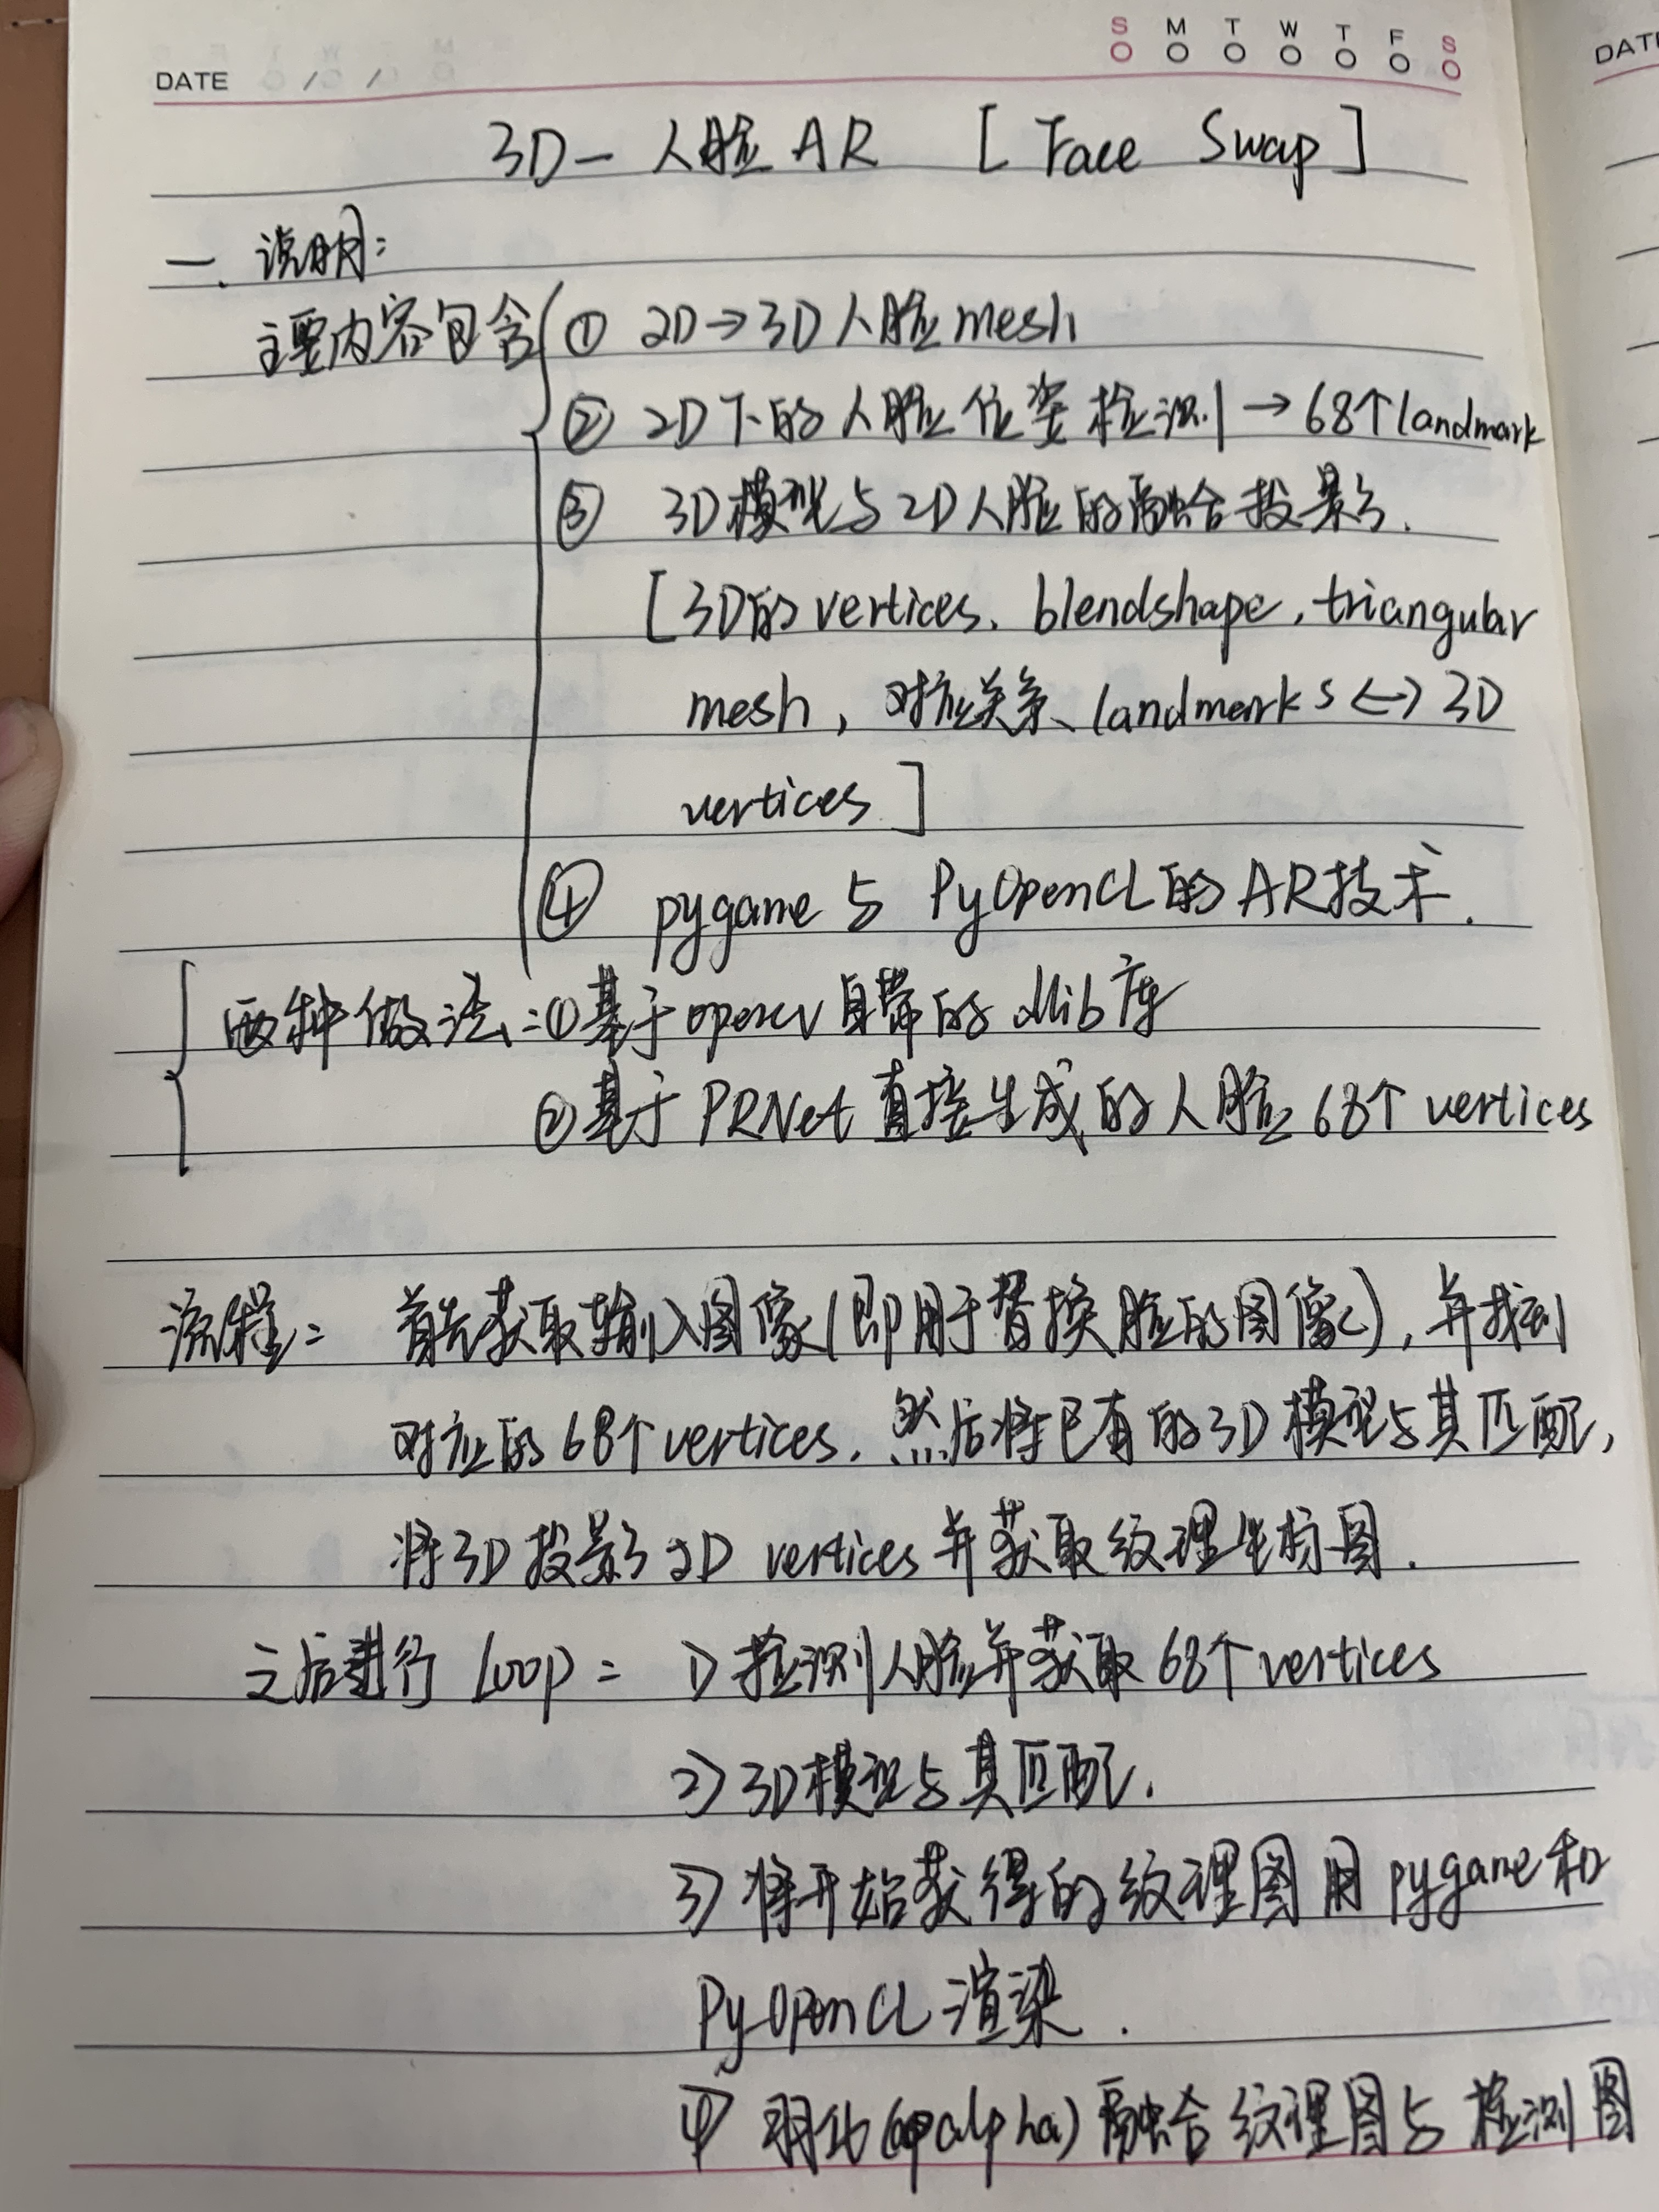 S M T W T F S
DATE / /
DATE
3D-人脸AR [Face Swap]
一. 说明:
主要内容包含 ① 2D→3D人脸mesh
② 2D下的人脸位姿检测→68个landmark
③ 3D模型与2D人脸的融合投影.
[3D的vertices、blendshape,triangular
mesh,对应关系、landmarks<->3D
vertices]
④ pygame与PyOpenCL的AR技术.
两种做法:①基于opencv自带的dlib库
②基于PRNet直接生成的人脸68个vertices
流程: 首先获取输入图像(即用于替换脸的图像),并找到
对应的68个vertices.然后将已有的3D模型与其匹配,
将3D投影2D vertices并获取纹理坐标图.
之后进行Loop: 1)检测人脸并获取68个vertices
2)3D模型与其匹配.
3)将开始获得的纹理图用pygame和
PyOpenCL渲染.
4)羽化(alpha)融合纹理图与检测图